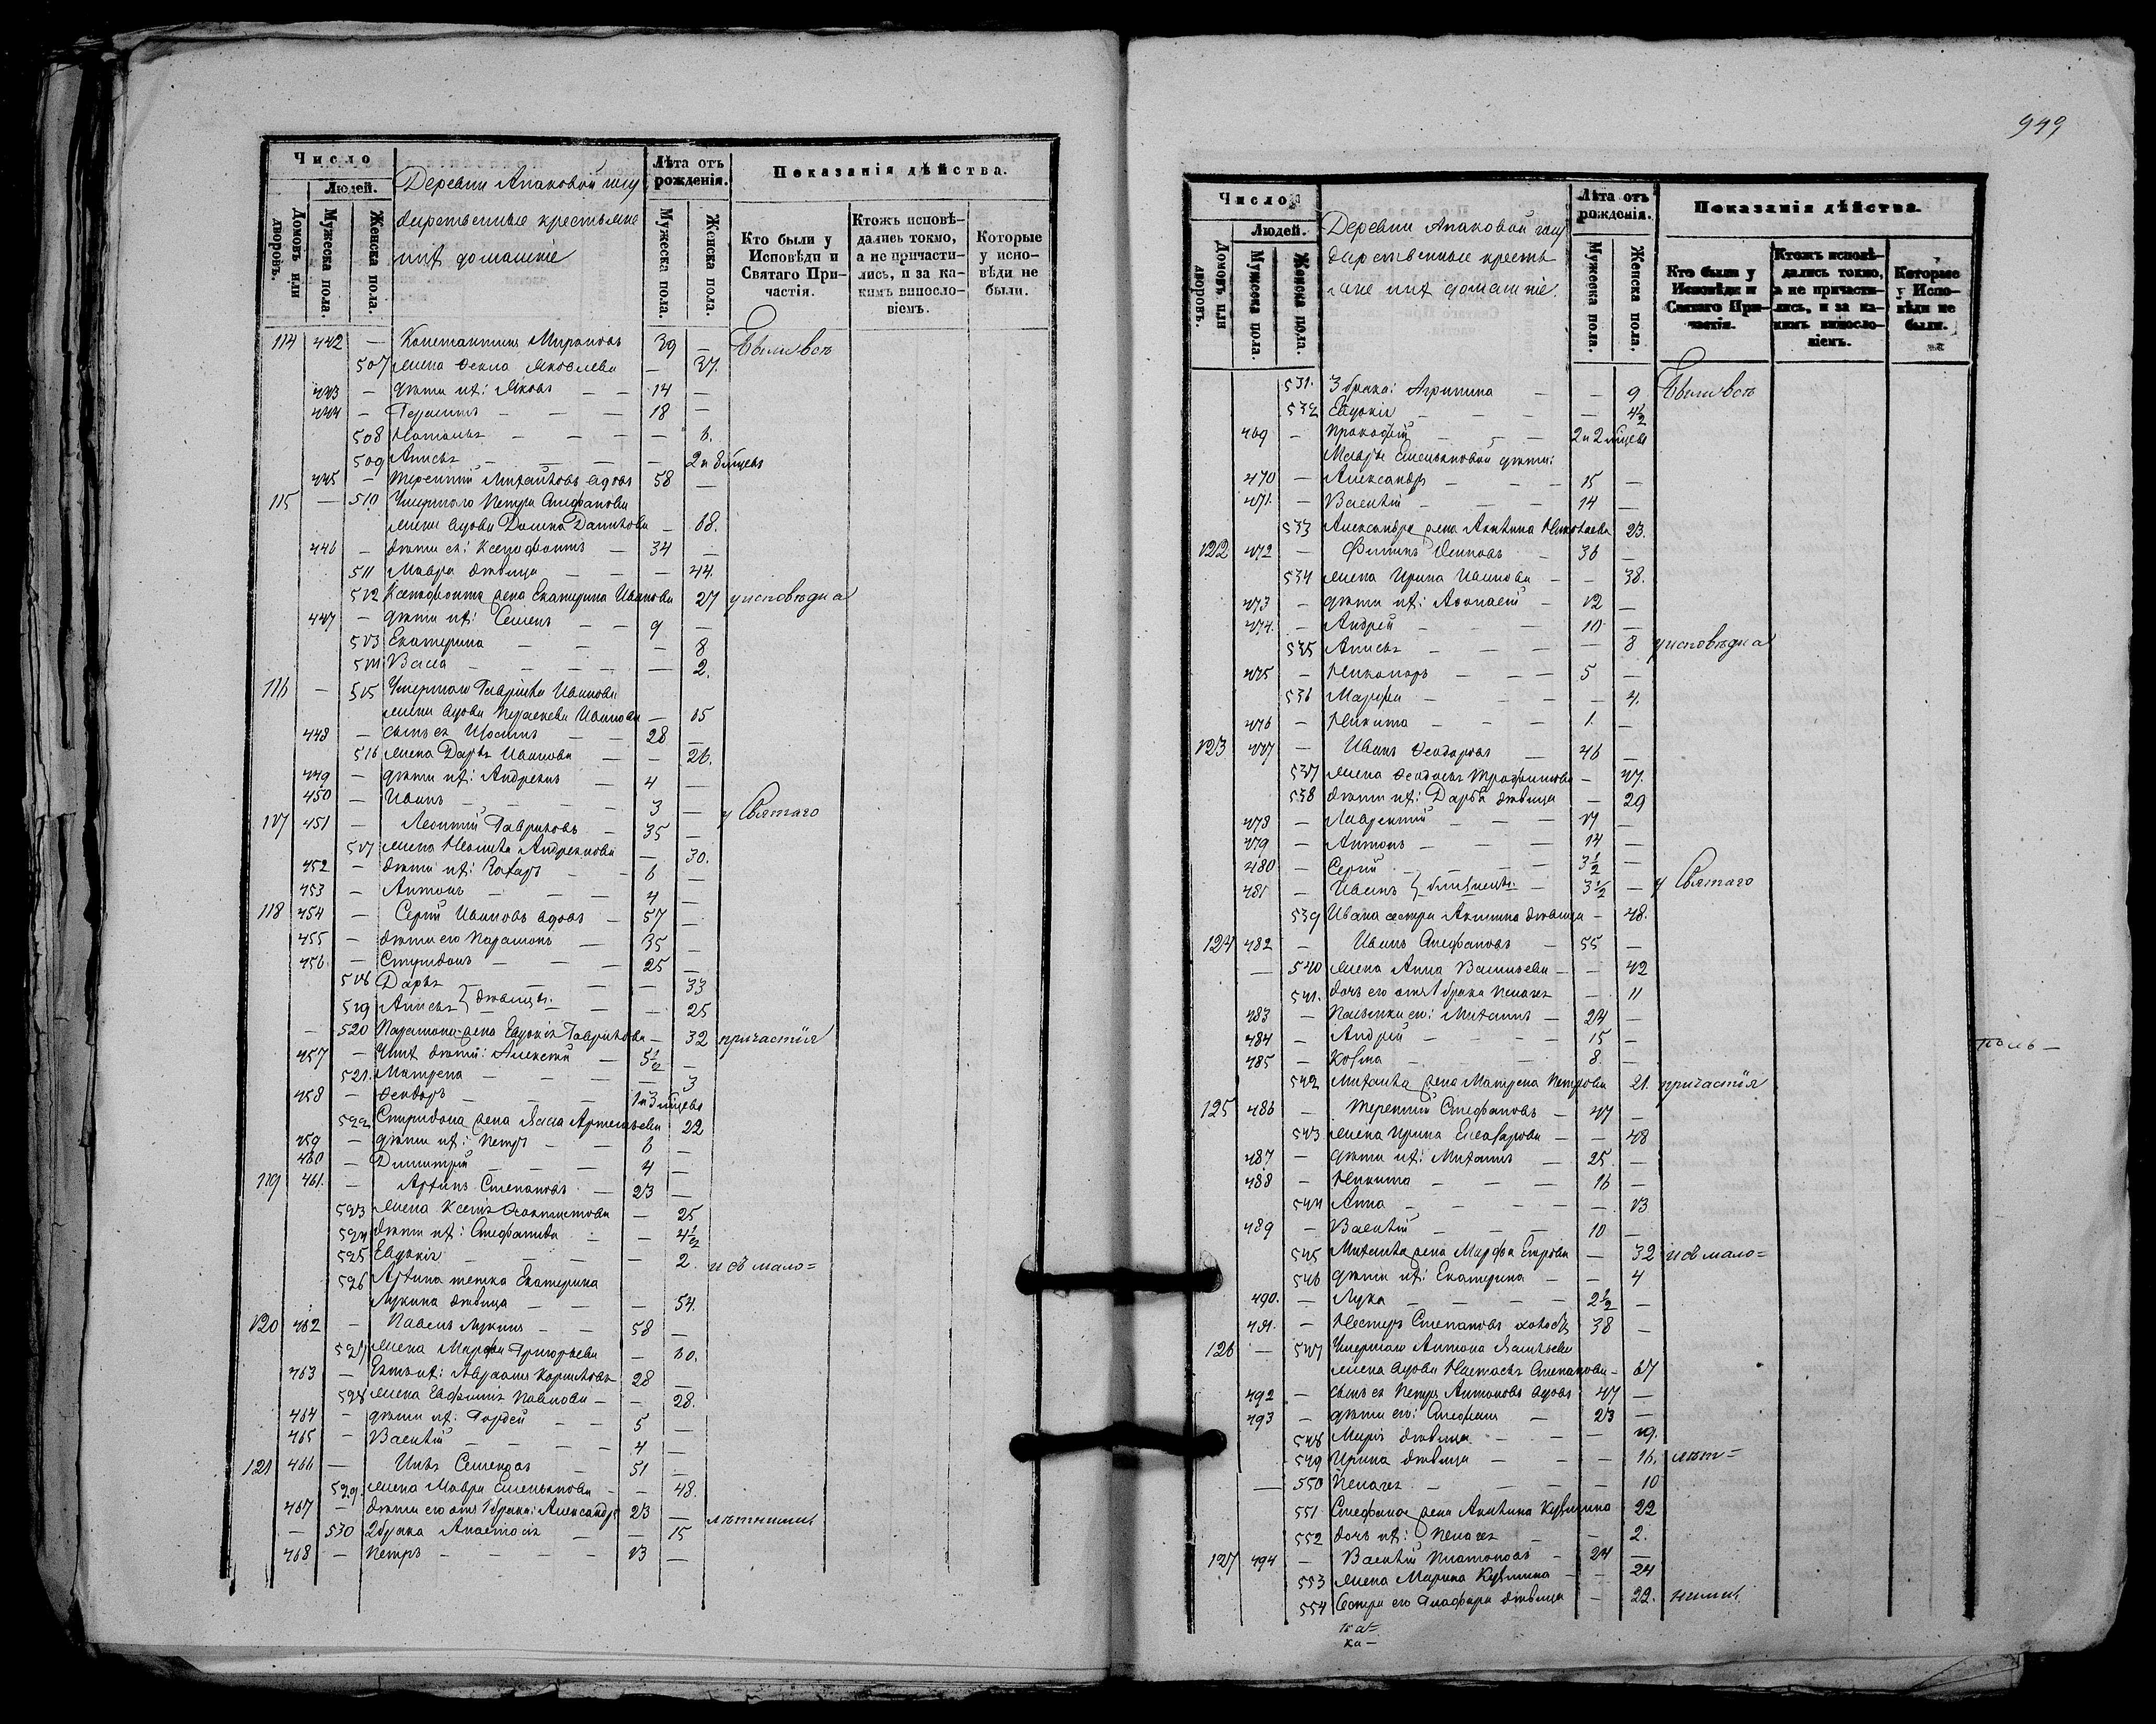 Число
Людей.
Домовъ или дворовъ.
Мужеска пола.
Женска пола.
Деревни Апаковой госу
дарственные крестьяне
ихъ домашніе
Лѣта отъ рожденія.
Мужеска пола.
Женска пола.
Показанія дѣйства.
Кто были у Исповѣди и Святаго Причастія.
Ктожъ исповѣдались токмо, а не причастились, и за какимъ винословіемъ.
Которые у исповѣди не были.
114 442 — Константинъ Мироновъ 39 — Были всѣ
507 жена Ѳекла Яковлева — 37.
443 — дѣти ихъ: Яковъ — — 14 —
444 — Герасимъ — — — 18 —
508 Наталья — — — — 6.
509 Анисья — — — — 2 и 8 мѣцевъ
445 — Терентій Михайловъ вдовъ 58 —
115 — 510 Умершаго Петра Стефанова
жена вдова Домна Данилова — 68.
446 — дѣти ея: Ксенофонтъ — 34 —
511 Мавра дѣвица — — — 44.
512 Ксенофонта жена Екатерина Иванова 27 у исповѣди и
447 — дѣти ихъ: Семенъ — — 9 —
513 Екатерина — — — 8
514 Васса — — — — — 2.
116 — 515 Умершаго Гавріила Иванова
жена вдова Параскева Иванова — 65
448 — сынъ ея — — 28 —
516 жена Дарья Иванова — — 26.
449 — дѣти ихъ: Андреянъ — 4 —
450 — Иванъ — — — 3 —
117 451 — Леонтій Гавриловъ — 35 — у Святаго
517 жена Неонила Андреянова — 30.
452 — дѣти ихъ: Захаръ — — 6 —
453 — Антонъ — — — 4 —
118 454 — Сергій Ивановъ вдовъ — 57 —
455 — дѣти его Парамонъ — 35 —
456 — Спиридонъ — — — 25 —
518 Дарья — — — — 33
519 Анисья } дѣвицы. — — 25
— 520 Парамона жена Евдокія Гаврилова — 32 причастія
457 — Ихъ дѣти: Алексѣй — 5½ —
521. Матрена — — — — 3
458 — Ѳеодоръ — — — 1 и 3 мѣцевъ
522 Спиридона жена Васса Артемьева 22
459 — дѣти ихъ: Петръ — — 6 —
460 — Димитрій — — — 4 —
119 461. — Архипъ Степановъ — 23 —
523 жена Ксенія Ѳеоктистова — 25
524 дѣти ихъ: Стефанида — — 4½
525 Евдокія — — — — 2. и съ мало=
526 Архипа тетка Екатерина
Лукина дѣвица — — — 54.
120 462 — Павелъ Лукинъ — — 58 —
527 жена Марфа Григорьева — 60.
463 — Зять ихъ: Авраамъ Корниловъ 28 —
528 жена Евфимія Павлова — — 28.
464 — дѣти ихъ: Гордей — — 5 —
465 — Василій — — — — 4 —
121 466 — Илья Семеновъ 51 —
529. жена Мавра Емельянова — — 48.
467 — дѣти его отъ 1 брака: Александръ 23 — лѣтними
— 530 2 брака Анастасія — — 15
468 — Петръ — — — — 13 —
949
Число
Людей.
Домовъ или дворовъ.
Мужеска пола.
Женска пола.
Деревни Апаковой госу
дарственные кресть
яне ихъ домашніе.
Лѣта отъ рожденія.
Мужеска пола.
Женска пола.
Показанія дѣйства.
Кто были у Исповѣди и Святаго Причастія.
Ктожъ исповѣдались токмо, а не причастились, и за какимъ винословіемъ.
Которые у Исповѣди не были.
531. 3 брака: Агрипина — — 9 Были всѣ
532 Евдокія — — — — 4½
469 — Прокофій — — — 2 и 2 мѣцевъ
Мавры Емельяновой дѣти:
470 — Александръ — — — 15 —
471. — Василій — — — 14 —
533 Александра жена Акилина Николаева 23.
122 472 — Филипъ Осиповъ — 36 —
534 жена Ирина Иванова — — 38.
473 — дѣти ихъ: Аѳонасій — 12 —
474. — Андрей — — — 10 —
535 Анисья — — — — 8 у исповѣди и
475 — Никаноръ — — — 5 —
536 Марфа — — — — 4.
476 — Никита — — — 1. —
123 477 — Иванъ Ѳеодоровъ — 46 —
537 жена Ѳеодосья Трофимова — 47.
538 дѣти ихъ: Дарья дѣвица — 29
478 — Лаврентій — — — 17 —
479 — Антонъ — — — 14 —
480 — Сергій — — — 3½ —
481 — Иванъ } близнецы. — 3½ — у Святаго
539 Ивана сестра Акилина дѣвица — 48.
124 482 — Иванъ Стефановъ — 55 —
— 540 жена Анна Васильева — — 42
541. дочь его отъ 1 брака Пелагея — 11
483 — Пасынки его: Михаилъ — 24 —
484 — Андрей — — — — 15 —
485 — Козма — — — 8 —
поль —
542 Михаила жена Матрена Петрова 21. причастія
125 486 — Терентій Стефановъ — 47 —
543 жена Ирина Елеазарова — — 48
487 — дѣти ихъ: Михаилъ — 25. —
488 — Никита — — — 16 —
544 Анна — — — — — 13
489 — Василій — — — 10 —
545 Михаила жена Марфа Егорова — 32 и съ мало=
546 дѣти ихъ: Екатерина — — 4
490. — Лука — — — — 2½ —
491. — Нестеръ Степановъ холостъ 38 —
126 — 547 Умершаго Антона
жена вдова Настасья Степанова — 67
492 — сынъ ея Петръ Антоновъ вдовъ 47 —
493 — дѣти его: Стефанъ — 23 —
548 Марія дѣвица — — — 19.
549 Ирина дѣвица — — — 16. лѣт=
— 550 Пелагея — — — — 10
551 Стефана жена Акилина Кузмина 22
552 дочь ихъ: Пелагея — — 2.
127 494 — Василій Платоновъ — 24 —
553 жена Марина Кузмина — — 24
554 Сестра его Глафира дѣвица — 22. ними